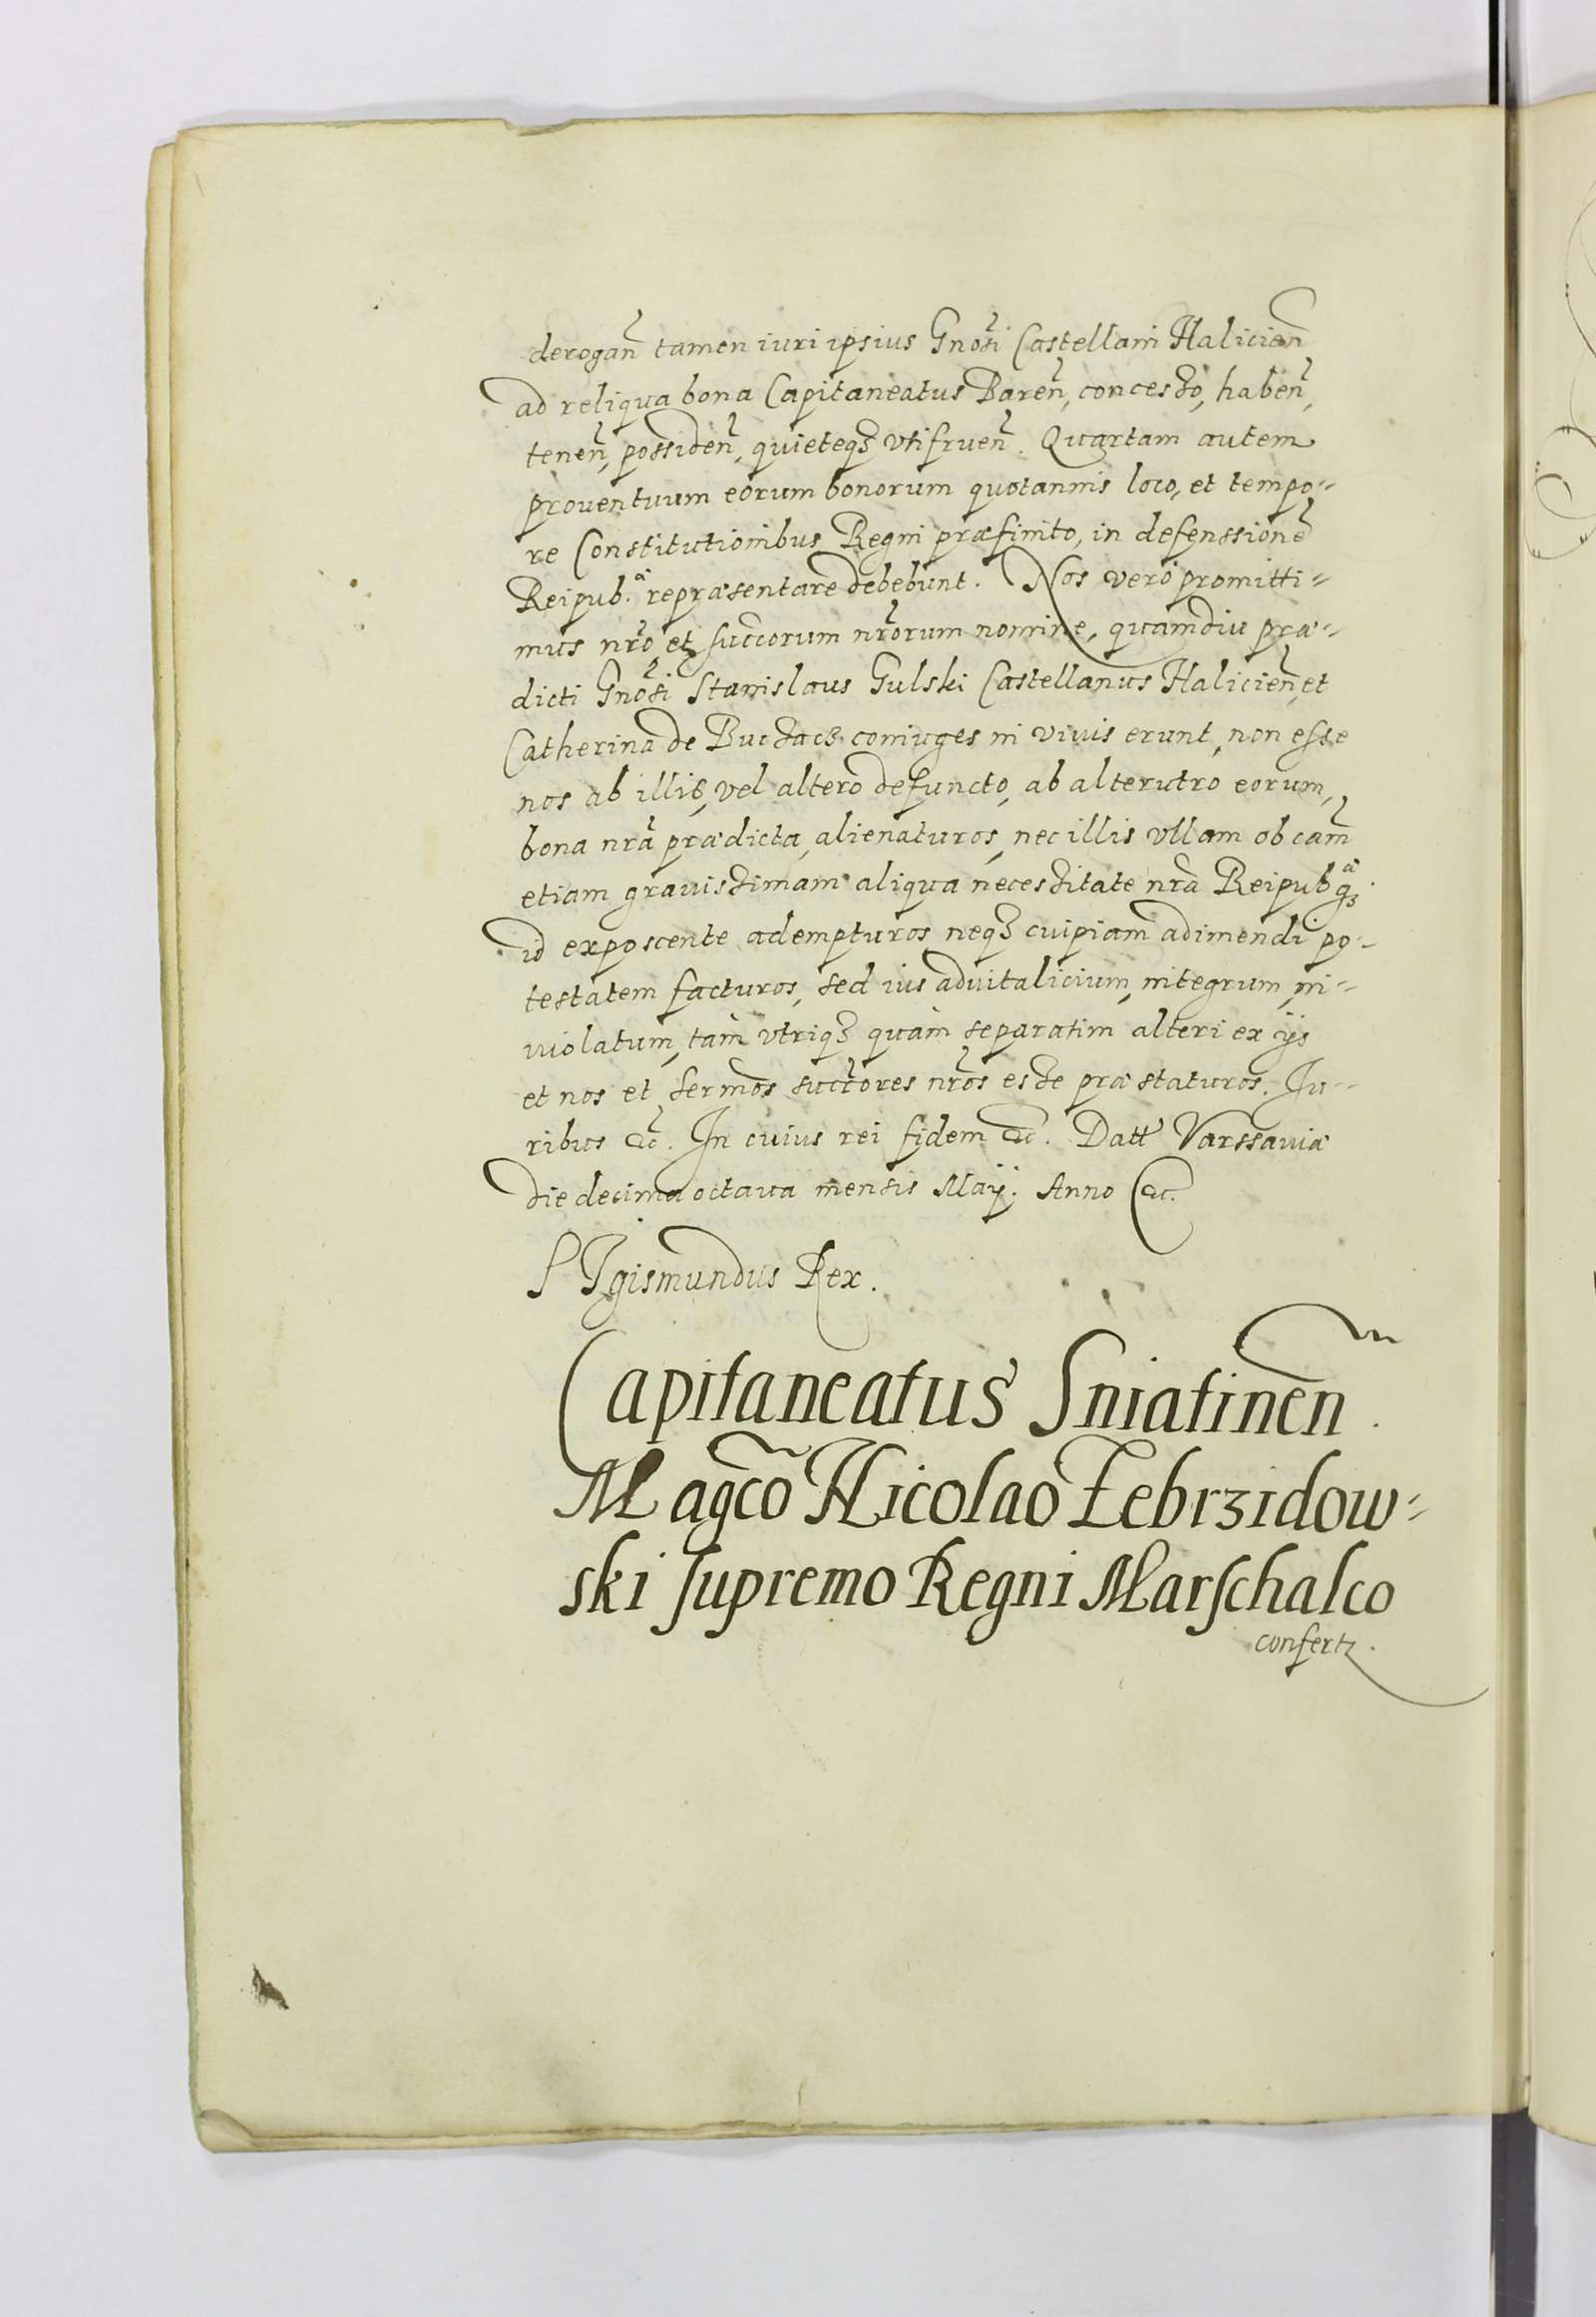 derogañ tamen iuri ipsius Gnosi Castellani Halicień
ad reliqua bona Capitaneatus Bareñ, concesso, habeñ,
teneñ, possideñ, quieteqȝ vtifrueñ. Quartam autem
prouentuum eorum bonorum quotannis loco, et tempo=
re Constitutionibus Regni præfinito, in defenssionē
Reipub.ᵃ̈ repræsentare debebunt. Nos vero promitti=
mus nr̃o et succorum nr̃orum nomine, quamdiu præ=
dicti Gnosi Stanislaus Gulski Castellanus Halicieñ, et
Catherina de Buczacz coniuges in viuis erunt, non esse
nos ab illis, vel altero defuncto, ab alterutro eorum,
bona nr̃a prædicta, alienaturos, nec illis vllam ob cam̃
etiam grauissimam aliqua necessitate nr̃a Reipubᵃ̈qȝ
id exposcente adempturos neqȝ cuipiam adimendi po=
testatem facturos, sed ius aduitalicium, integrum, in=
uiolatum, tàm vtriqȝ quàm separatim alteri ex ijs
et nos et sermos succores nr̃os esse præstaturos. Iu=
ribus &c̃. In cuius rei fidem &c̃. Datt Varssauiæ
die decima octaua mensis Maÿ. Anno &c.
SIgismundus Rex.
Capitaneatus Sniatineñ.
Magco Nicolao Zebrzidow=
ski supremo Regni Marschalco
confertȝ.